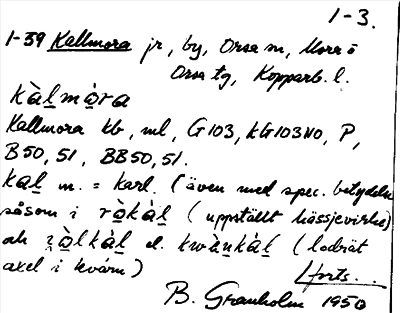 1-3.
1-39 Kallmora jr, by, Orsa sn, Mora ö
Orsa tg, Kopparb. l.
kàl̲mò̲ra
Kallmora kb, ml, G103, kG103NO, P,
B50, 51, BB50, 51.
kal̲ m. = karl. (även med spec. betydelse
såsom i rò̲kàl̲ (uppställt hässjevirke)
och kwàṉkàl̲ (lodrät
axel i kvarn)
forts...
B. Granholm 1950